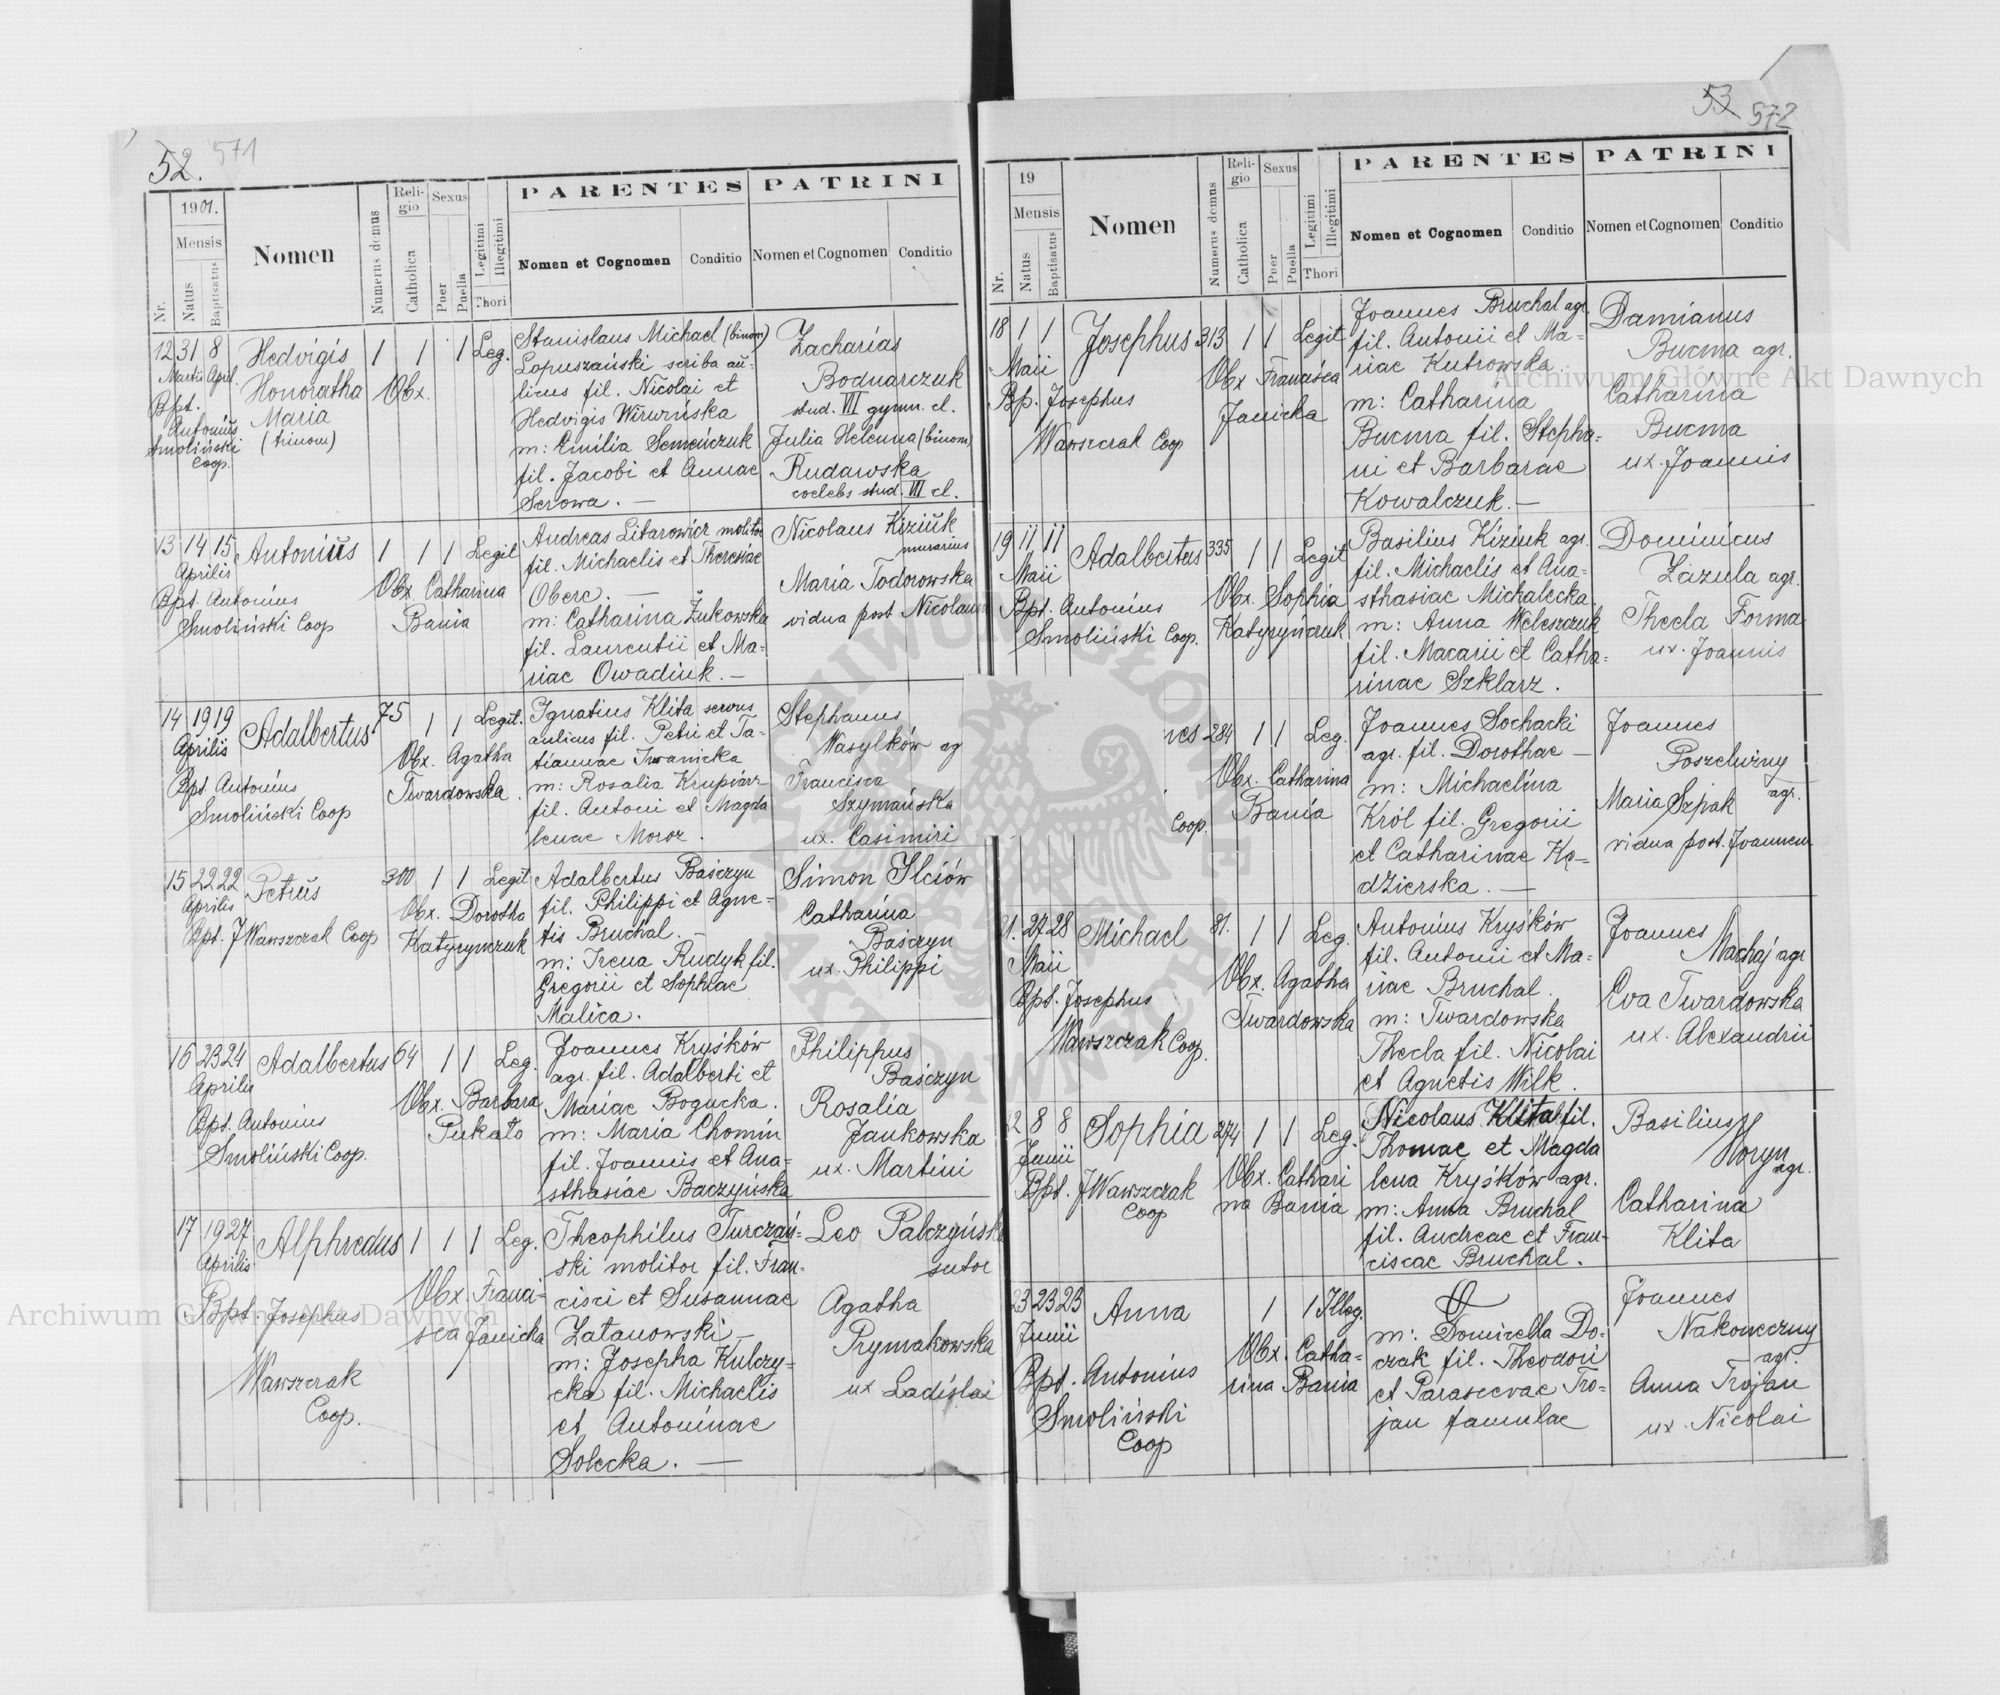 52. 571
1901.
Mensis
Nr.
Natus
Baptisatus
Nomen
Numerus domus
Religio
Catholica
Sexus
Puer
Puella
Legitimi
Illegitimi
Thori
PARENTES
Nomen et Cognomen
Conditio
PATRINI
Nomen et Cognomen
Conditio
12 31 8 Hedvigis 1 1 1 Leg.
Martii April. Honoratha Obx.
Bpt. Maria
Antonius (trinom)
Smoliński
Coop.
Stanislaus Michael (binom)
Lopuszański scriba au-
licus fil. Nicolai et
Hedvigis Wirwińska
m: Emilia Semeńczuk
fil. Jacobi et Annae
Serowa. —
Zacharias
Bodnarczuk
stud. VII gymn. cl.
Julia Helenna (binom)
Rudawska
coelebs stud. VII cl.
13 14 15 Antonius 1 1 1 Legit
Aprilis
Bpt. Antonius Obx. Catharina
Smoliński Coop Bania
Andreas Litarowicz molitor
fil. Michaelis et Theresiae
Oberc. —
m: Catharina Żukowska
fil. Laurentii et Ma-
riae Owadiuk. —
Nicolaus Kiziuk
murarius
Maria Todorowska
vidua post Nicolaum
14 19 19 Adalbertus 75 1 1 Legit.
Aprilis Obx. Agatha
Bpt. Antonius Twardowska.
Smoliński Coop
Ignatius Klita servus
aulicus fil. Petri et Ta-
tiannae Iwanicka
m: Rosalia Krupiarz
fil. Antoni et Magda
lenae Moroz.
Stephanus
Wasylków ag
Francisca
Szymańska
ux. Casimiri
15 22 22 Petrus 300 1 1 Legit
Aprilis Obx. Dorotha
Bpt. J Wawszczak Coop Katyrynczuk
Adalbertus Baśczyn
fil. Philippi et Agne-
tis Bruchal. —
m: Irena Rudyk fil.
Gregorii et Sophiae
Malica.
Simon Ilciów
Catharina
Baśczyn
ux. Philippi
16 23 24 Adalbertus 64 1 1 Leg.
Aprilis Obx. Barbara
Bpt. Antonius Pukato
Smoliński Coop.
Joannes Kryśków
agr. fil. Adalberti et
Mariae Bogucka.
m: Maria Chomin
fil. Joannis et Ana-
sthasiae Baczyńska
Philippus
Baśczyn
Rosalia
Jankowska
ux. Martini
17 19 27 Alphredus 1 1 1 Leg.
Aprilis
Bpt. Josephus Obx. Franci-
sca Janicka
Wawszczak
Coop.
Theophilus Turczań-
ski molitor fil. Fran-
cisci et Susannae
Zatanowski —
m: Josepha Kulczy-
cka fil. Michaelis
et Antoninae
Solecka. —
Leo Palczyński
sutor
Agatha
Prymakowska
ux Ladislai
53 572
19
Mensis
Nr.
Natus
Baptisatus
Nomen
Numerus domus
Religio
Catholica
Sexus
Puer
Puella
Legitimi
Illegitimi
Thori
PARENTES
Nomen et Cognomen
Conditio
PATRINI
Nomen et Cognomen
Conditio
18 1 1 Josephus 313 1 1 Legit
Maii Obx Francisca
Bp. Josephus Janicka
Wawszczak Coop
Joannes Bruchal agr.
fil. Antonii et Ma-
riae Kutrowska.
m: Catharina
Bucma fil. Stepha-
ni et Barbarae
Kowalczuk. —
Damianus
Bucma agr.
Catharina
Bucma
ux. Joannis
19 11 11 Adalbertus 335 1 1 Legit
Maii Obx. Sophia
Bpt. Antonius Katyryńczuk
Smoliński Coop.
Basilius Kiziuk agr.
fil. Michaelis et Ana-
sthasiae Michalecka.
m: Anna Weleszczuk
fil. Macarii et Catha-
rinae Szklarz.
Dominicus
Zazula agr.
Thecla Forma
ux. Joannis
nes 284 1 1 Leg.
Obx. Catharina
Bania
Coop.
Joannes Sochacki
agr. fil. Dorothae —
m: Michaelina
Król fil. Gregorii
et Catharinae Kę-
dzierska. —
Joannes
Poszeluzny
agr.
Maria Szpak
vidua post. Joannem
21. 27 28 Michael 81. 1 1 Leg.
Maii Obx. Agatha
Bpt. Josephus Twardowska
Wawszczak Coop.
Antonius Kryśków
fil. Antonii et Ma-
riae Bruchal.
m: Twardowska
Thecla fil. Nicolai
et Agnetis Wilk.
Joannes
Machaj agr
Eva Twardowska
ux. Alexandrii
22 8 8 Sophia 274 1 1 Leg.
Junii Obx. Cathari
Bpt. J Wawszczak na Bania
Coop
Nicolaus Klita fil.
Thomae et Magda
lena Kryśków agr.
m: Anna Bruchal
fil. Andreae et Fran-
ciscae Bruchal.
Basilius
Horyn
agr.
Catharina
Klita
23 23 25 Anna 1 1 Illeg.
Junii Obx. Catha-
Bpt. Antonius rina Bania
Smoliński
Coop
m: Domicella Do-
czak fil. Theodori
et Parascevae Tro-
jan famulae
Joannes
Nakoneczny
agr.
Anna Trojan
ux. Nicolai
Archiwum Główne Akt Dawnych
Archiwum Główne Akt Dawnych
ARCHIWUM GŁÓWNE AKT DAWNYCH